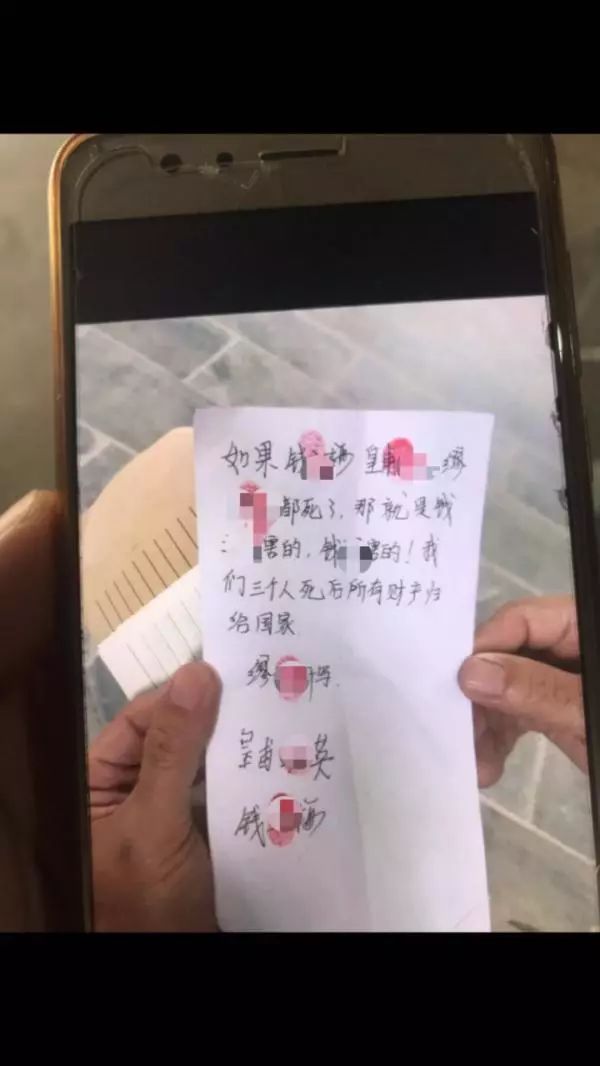 如果钱海皇甫缪
都死了，那就是钱
害的，钱害的！我
们三个人死后所有财产归
给国家
缪
皇甫英
钱海